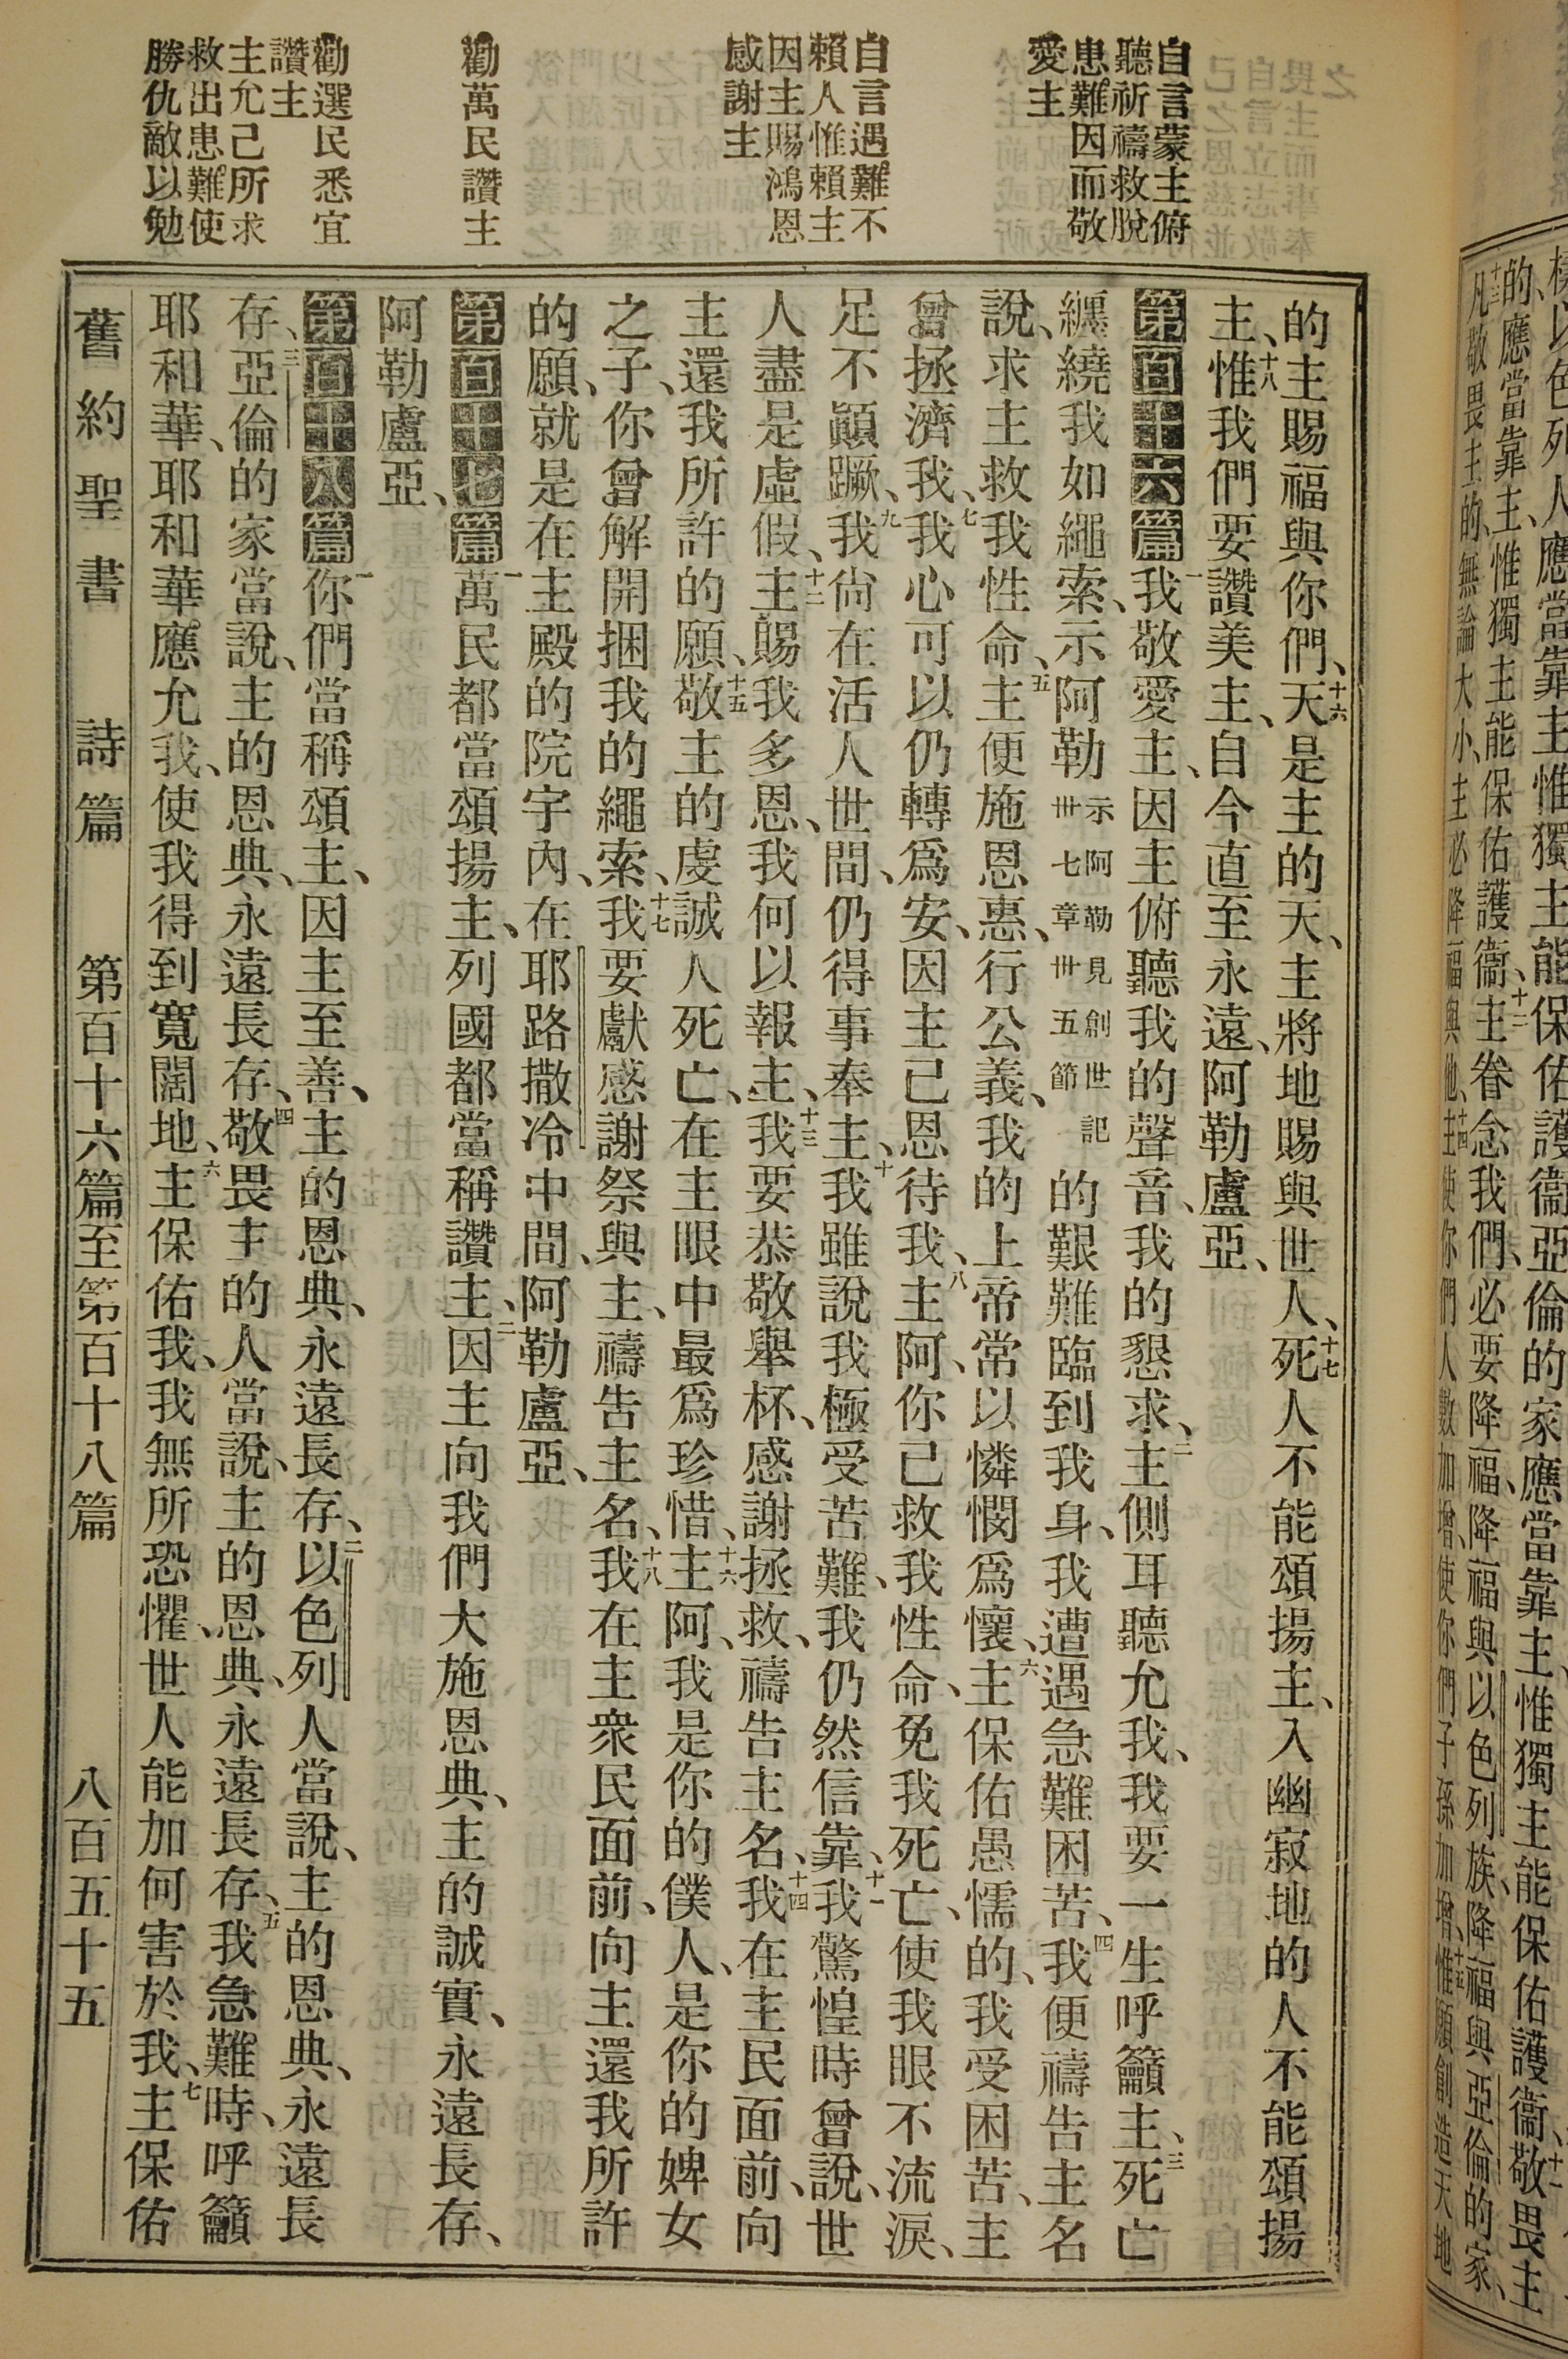 自言蒙主俯
聽祈禱救脫
患難因而敬
愛主
自言遇難不
賴人惟賴主
因主賜鴻恩
感謝主
勸萬民讚主
勸選民悉宜
讚主
主允己所求
救出患難使
勝仇敵以勉
的主賜福與你們、十六天是主的天、主將地賜與世人、十七死人不能頌揚主、入幽寂地的人不能頌揚
主、十八惟我們要讚美主、自今直至永遠、阿勒盧亞、
第百十六篇一我敬愛主、因主俯聽我的聲音、我的懇求、二主側耳聽允我、我要一生呼籲主、三死亡
纏繞我如繩索、示阿勒示阿勒見創世記卅七章卅五節的艱難臨到我身、我遭遇急難困苦、四我便禱告主名
說、求主救我性命、五主便施恩惠、行公義、我的上帝常以憐憫爲懷、六主保佑愚懦的、我受困苦、主
曾拯濟我、七我心可以仍轉爲安、因主已恩待我、八主阿、你已救我性命、免我死亡、使我眼不流淚、
足不顚蹶、九我尙在活人世間、仍得事奉主、十我雖說我極受苦難、我仍然信靠、十一我驚惶時曾說、世
人盡是虛假、十二主賜我多恩、我何以報主、十三我要恭敬舉杯、感謝拯救、禱告主名、十四我在主民面前、向
主還我所許的願、十五敬主的虔誠人死亡、在主眼中最爲珍惜、十六主阿、我是你的僕人、是你的婢女
之子、你曾解開捆我的繩索、十七我要獻感謝祭與主、禱告主名、十八我在主衆民面前、向主還我所許
的願、就是在主殿的院宇內、在耶路撒冷中間、阿勒盧亞、
第百十七篇一萬民都當頌揚主、列國都當稱讚主、二因主向我們大施恩典、主的誠實、永遠長存、
阿勒盧亞、
第百十八篇一你們當稱頌主、因主至善、主的恩典、永遠長存、二以色列人當說、主的恩典、永遠長
存、三亞倫的家當說、主的恩典、永遠長存、四敬畏主的人當說、主的恩典、永遠長存、五我急難時、呼籲
耶和華、耶和華應允我、使我得到寬闊地、六主保佑我、我無所恐懼、世人能加何害於我、七主保佑
舊約聖書 詩篇 第百十六篇至第百十八篇 八百五十五